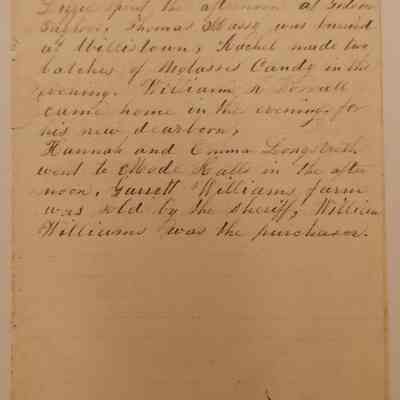 spent the afternoon at Gideon
Thomas Massey was buried
at Willistown, Rachel made two
batches of Molasses Candy in the
evening. William H
came home in the evening for
his new dearborn,
Hannah and Emma Longstreth
went to Mode Halls in the after
noon, Garrett Williams farm
was sold by the sheriff, William
Williams was the purchaser.